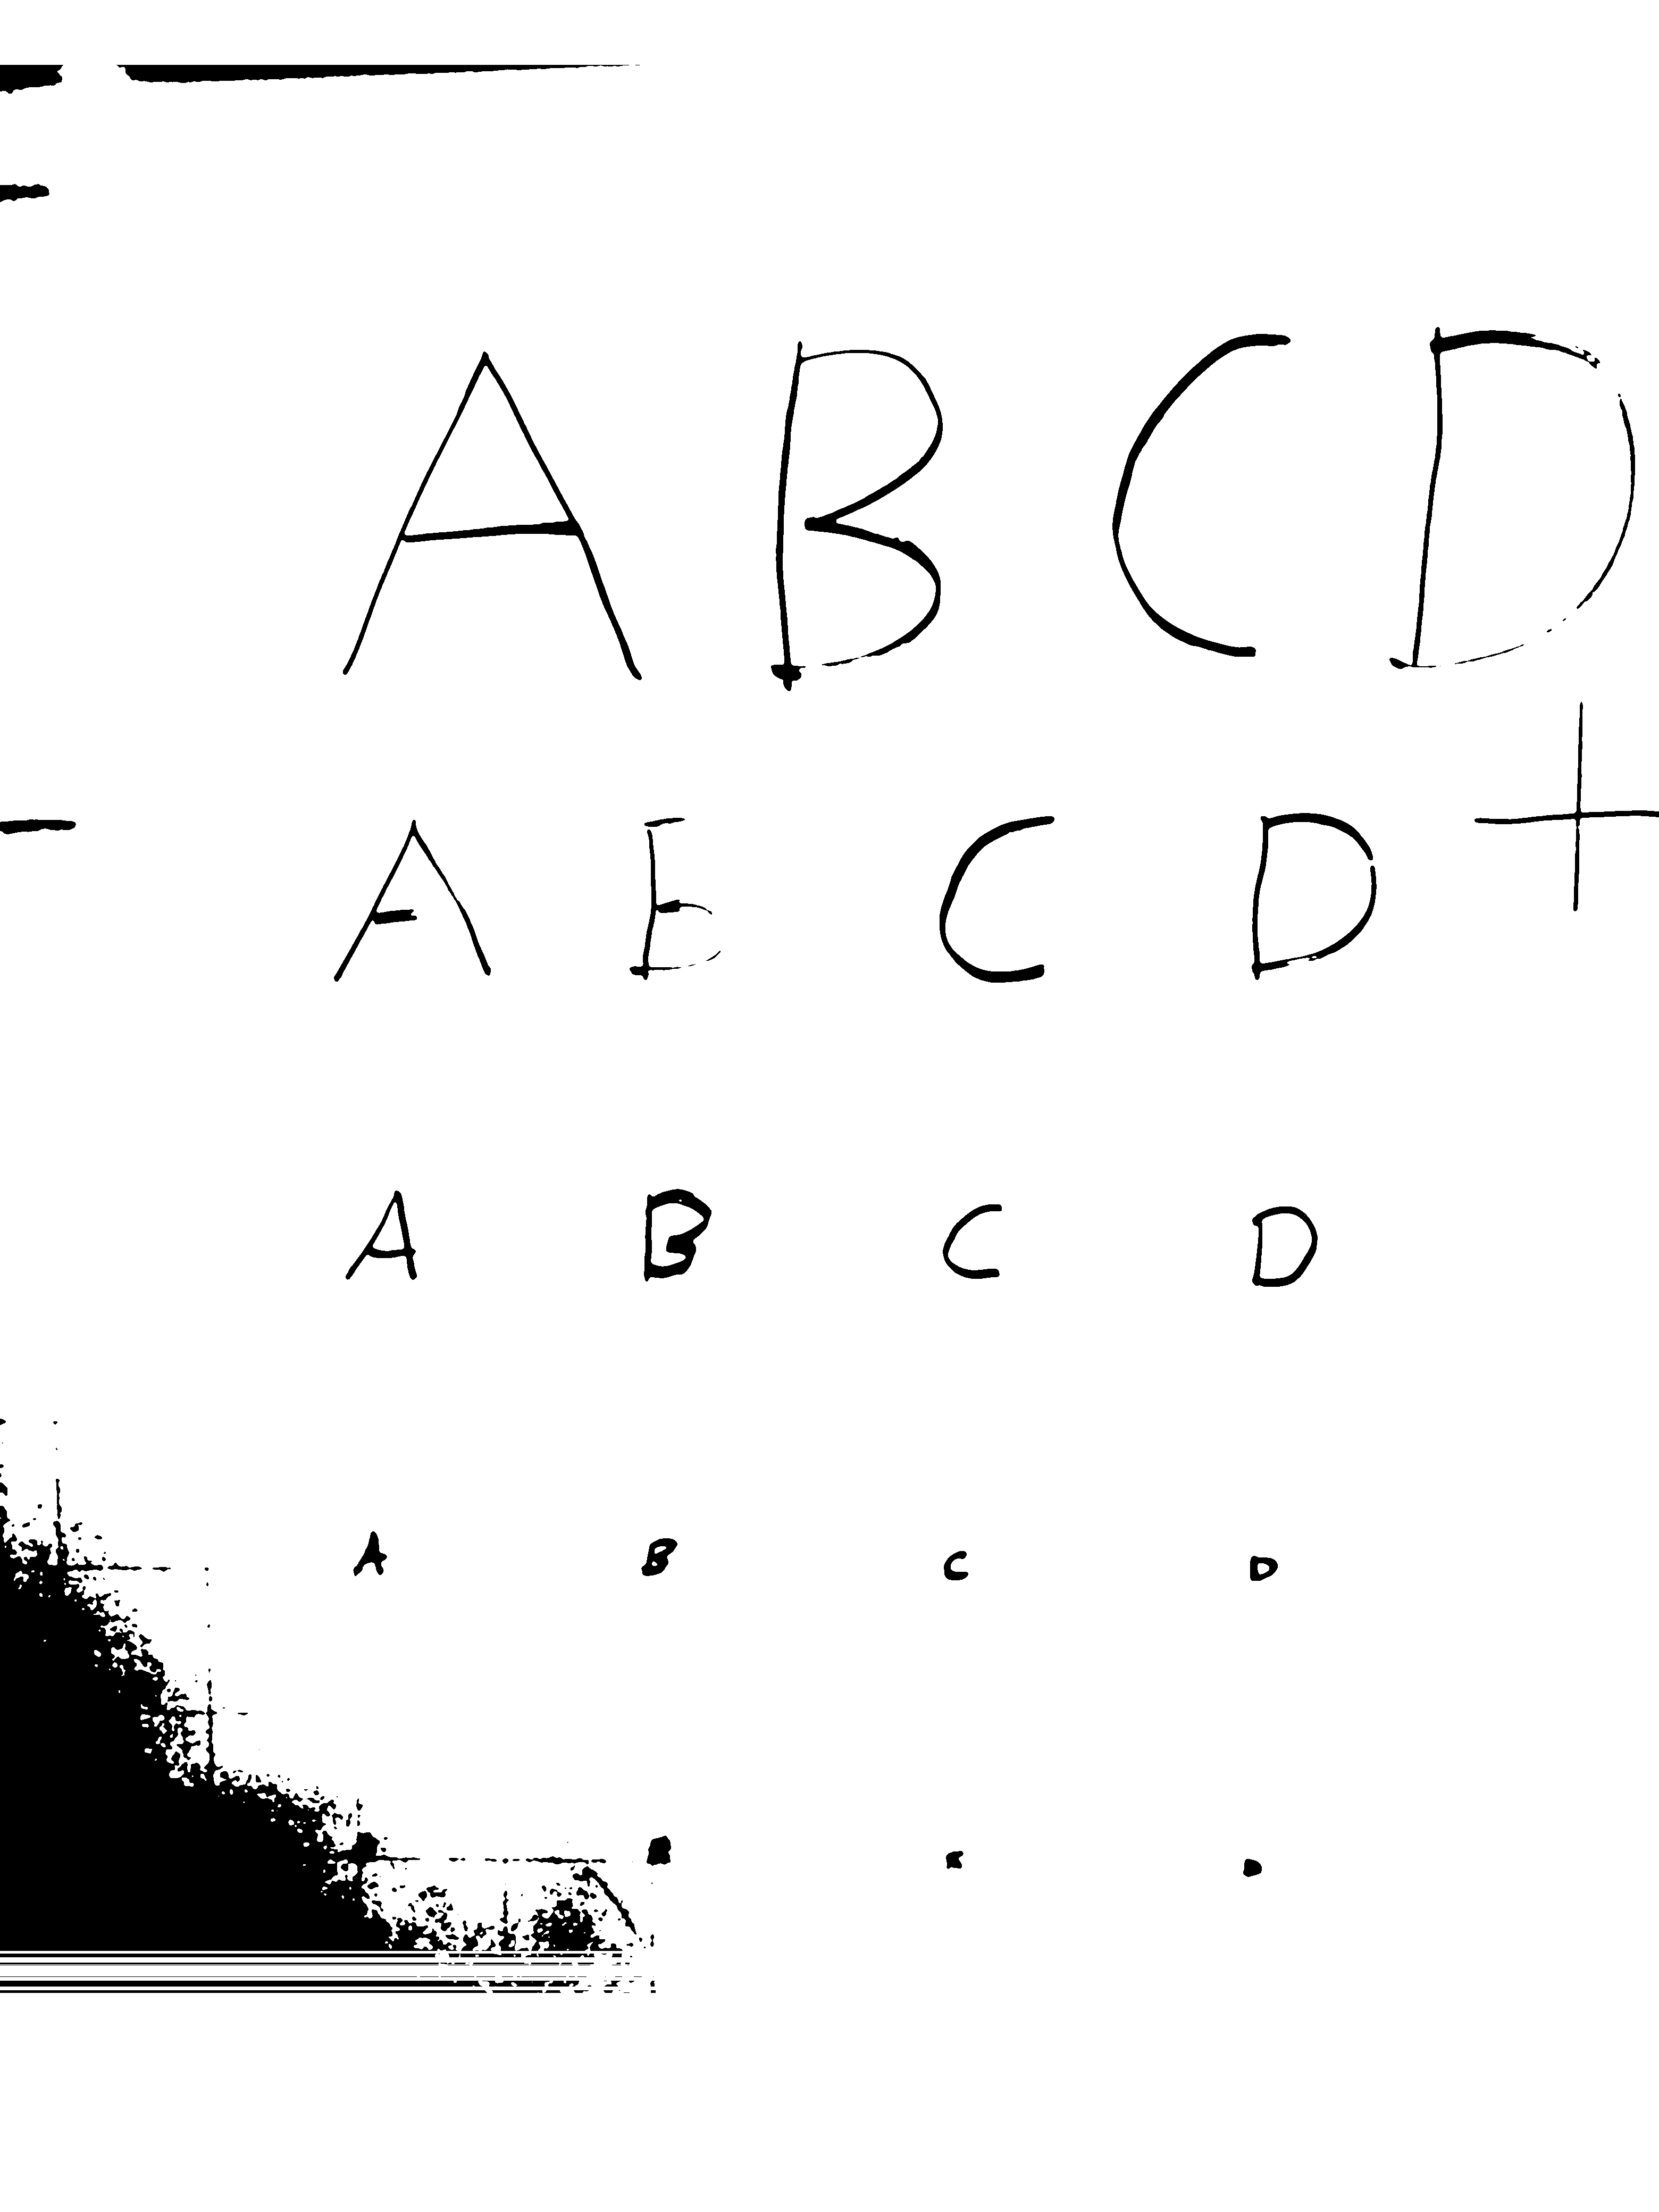 A B C D
A B C D +
A B C D
A B C D